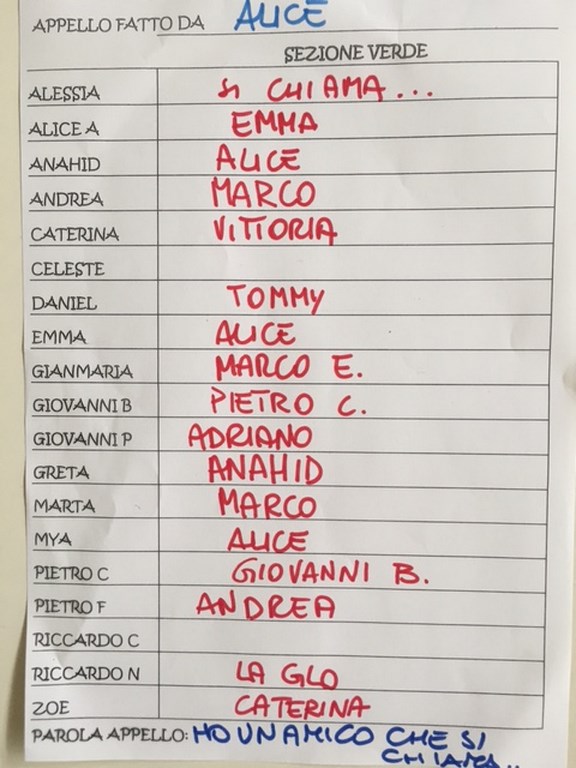 APPELLO FATTO DA ALICE
SEZIONE VERDE
ALESSIA SI CHIAMA...
ALICE A EMMA
ANAHID ALICE
ANDREA MARCO
CATERINA VITTORIA
CELESTE
DANIEL TOMMY
EMMA ALICE
GIANMARIA MARCO E.
GIOVANNI B PIETRO C.
GIOVANNI P ADRIANO
GRETA ANAHID
MARTA MARCO
MYA ALICE
PIETRO C GIOVANNI B.
PIETRO F ANDREA
RICCARDO C
RICCARDO N LA GLO
ZOE CATERINA
PAROLA APPELLO: HO UN AMICO CHE SI
CHIAMA..